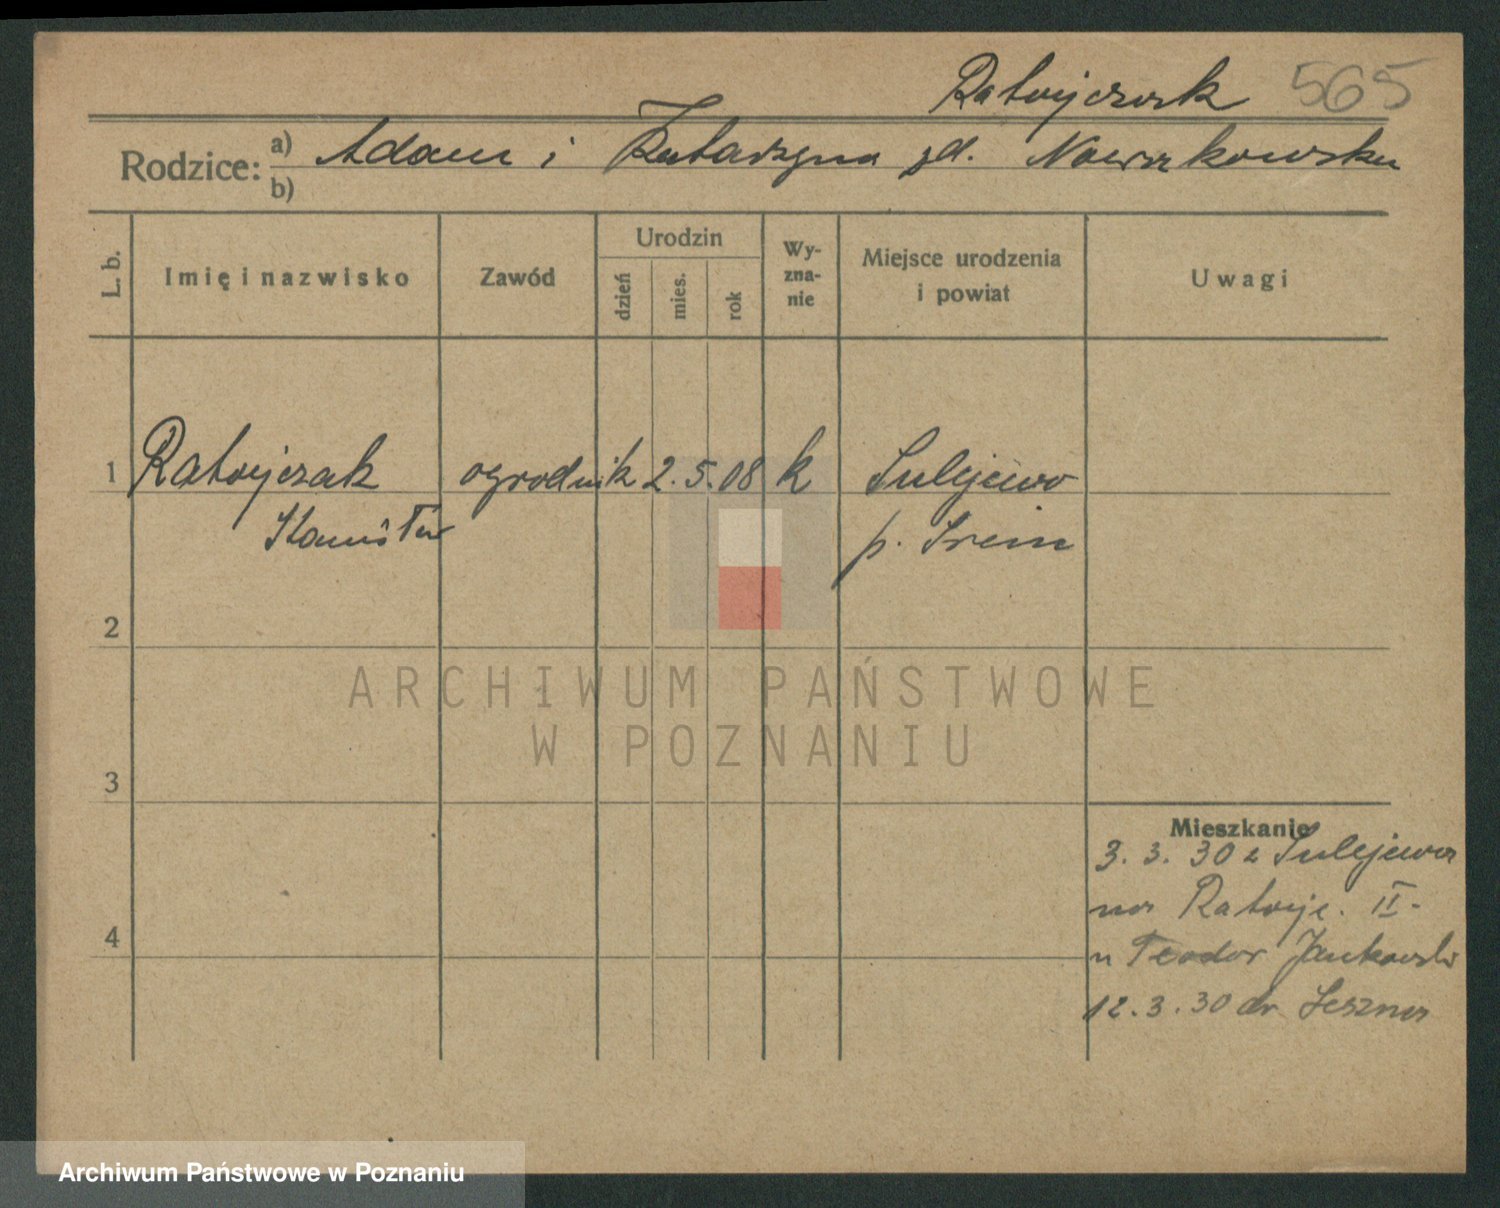 Ratajczak 565
Rodzice: a) Adam i Katarzyna zd. Nowakowska
b)
L. b.
Imię i nazwisko
Zawód
Urodzin
dzień
mies.
rok
Wy-
zna-
nie
Miejsce urodzenia
i powiat
Uwagi
1 Ratajczak ogrodnik 2. 5. 08 k Sulejewo
p. Śrem
2
3
4
Mieszkanie
3. 3. 30 z Sulejewa
na Rataje. II-
u Teodor Jankowski
12. 3. 30 do Leszna
ARCHIWUM PAŃSTWOWE
W POZNANIU
Archiwum Państwowe w Poznaniu